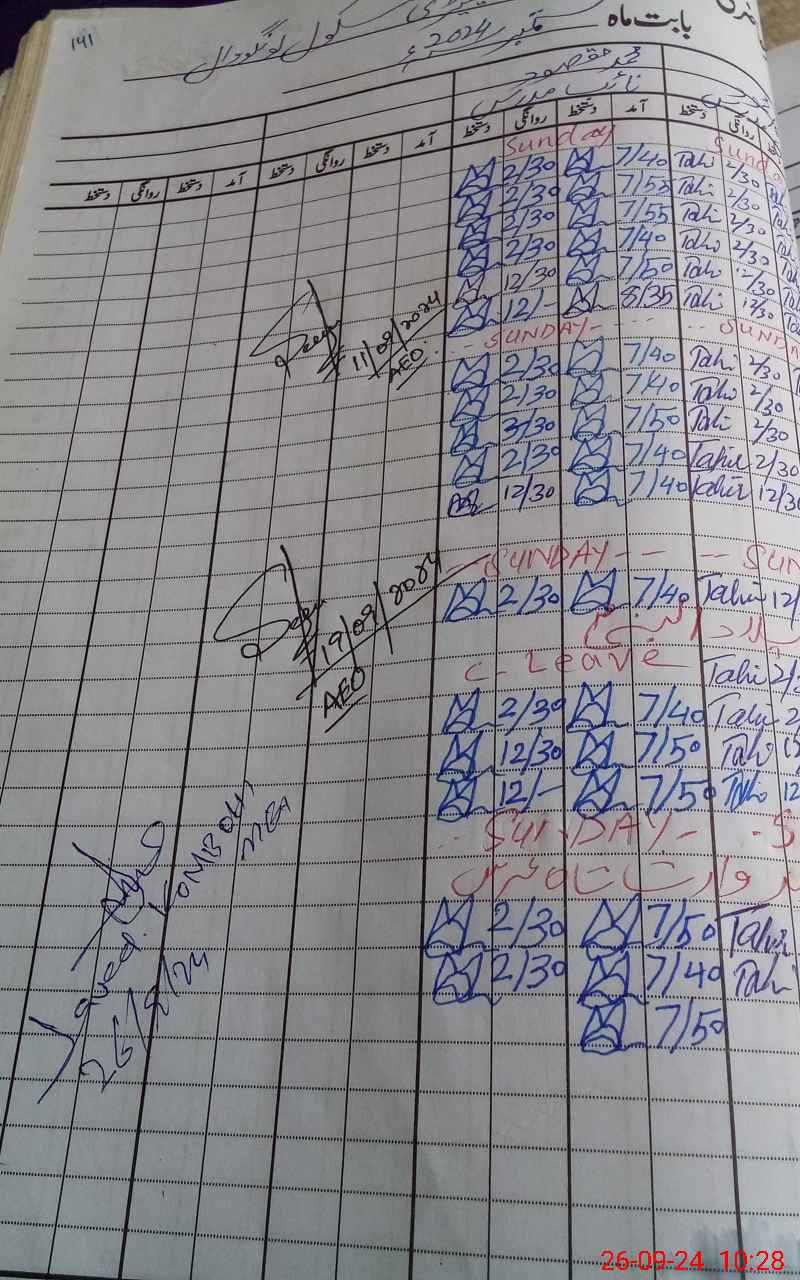 141
بابت ماہ ستمبر 2024ء
سکول لونگووال
محمد مقصود
نائب مدرس
دستخط روانگی دستخط آمد دستخط روانگی دستخط آمد دستخط روانگی دستخط آمد دستخط روانگی
Sunday Sunda
2/30 7/40 Tahi 2/30
2/30 7/55 Tahi 2/30
2/30 7/55 Tahi 2/30
2/30 7/40 Tahi 2/30
12/30 7/50 Tahi 12/30
12/- 8/35 Tahi 12/30
11/09/2024
AEO
SUNDAY - SUNDA
2/30 7/40 Tahi 2/30
2/30 7/40 Tahi 2/30
3/30 7/50 Tahi 2/30
2/30 7/40 Tahir 2/30
12/30 7/40 Tahir 12/30
SUNDAY - - - - SUN
2/30 7/40 Tahir 12/
19/09/2024
AEO
میلاد النبی
C- Leave Tahi 2/
2/30 7/40 Tahir 2
12/30 7/50 Tahi
12/- 7/50 Tahi 12
SUNDAY - S
2/30 7/50 Tahir
2/30 7/40 Tahi
7/50
Javed KOMBOH
MEA
26/9/24
26-09-24 10:28